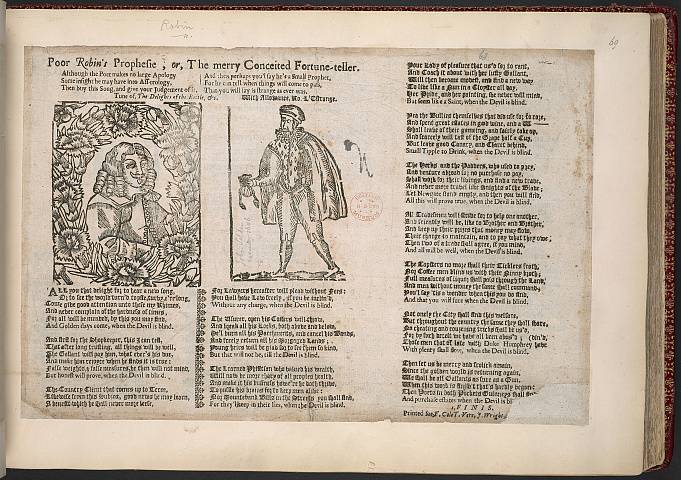 Robin
69
69
Poor Robin's Prophesie; or, The merry Conceited Fortune-teller.
Although the Poet makes no large Apology
Some insight he may have into Astrology.
Then buy this Song, and give your Judgement of it,
And then perhaps you'l say he's a Small Prophet,
For he can tell when things will come to pass,
That you will say is strange as ever was.
Tune of, The Delights of the Bottle, &c.
With Allowance, Ro. L'Estrange.
ALL you that delight for to hear a new song,
Or to see the world turn'd topsie-turvy e're long,
Come give good attention unto these my Rhimes,
And never complain of the hardness of times,
For all will be mended, by this you may find,
And Golden days come, when the Devil is blind.
And first for the Shopkeeper, this I can tell,
That after long trusting, all things will be well,
The Gallant will pay him, what ever's his due,
And make him rejoyce when he finds it is true:
False weights, & false measures, he then will not mind,
But honest will prove, when the Devil is blind.
The Country Client that comes up to Term,
Likewise from this Subject, good news he may learn,
A benefit which he shall never more lose,
For Lawyers hereafter will plead without Fees:
You shall have Law freely, if you be inclin'd,
Without any charge, when the Devil is blind.
The Usurer, open his Coffers will throw,
And break all his Locks, both above and below,
He'll burn all his Parchments, and cancel his Bonds,
And freely return all his Morgaged Lands:
Young heirs will be glad for to see them so kind,
But that will not be, till the Devil is blind.
The Learned Physician who valued his wealth,
Will now be more chary of all peoples health,
And make it his business how e're he doth thrive,
To posse his brains for to keep men alive:
No Mountebank Bills in the Streets you shall find,
For they keep in their lies, when the Devil is blind.
Your Lady of pleasure that us'd for to rant,
And Coach it about with her lusty Gallant,
Will then become modest, and find a new way
To live like a Nun in a Cloyster all day.
Her Pride, and her painting, she never will mind,
But seem like a Saint, when the Devil is blind.
Nay the Bullies themselves that did use for to roar,
And spend great estates in good wine, and a W
Shall leave of their gameing, and fairly take up,
And scarcely will tast of the Grape half a Cup,
But leave good Canary, and Claret behind,
Small Tipple to Drink, when the Devil is blind.
The Hectors and the Padders, who used to prey,
And venture abroad for no purchase no pay,
Shall work for their livings, and find a new trade,
And never more travel like Knights of the Blade;
Let Newgate stand empty, and then you will find,
All this will prove true, when the Devil is blind.
All Tradesmen will strive for to help one another,
And friendly will be, like to Brother and Brother,
And keep up their prizes that money may flow,
Their charge to maintain, and to pay what they owe,
Then two of a trade shall agree, if you mind,
And all will be well, when the Devil is blind.
The Tapsters no more shall their Tickless froth,
Nor Coffee men blind us with their Ninny broth;
Full measures of liquor shall pass through the Land,
And men without money the same shall command;
You'l say 'tis a wonder when this you do find,
And that you will see when the Devil is blind.
Not onely the City shall find this welfare,
But throughout the country the same they shall share,
No cheating and cousening tricks shall be us'd,
Nor by such deceit we have all been abus'd;
Those men that oft late with Duke Humphrey have din'd,
With plenty shall flow, when the Devil is blind.
Then let us be merry and frolick amain,
Since the golden world is returning again,
We shall be all Gallants as sure as a Gun,
When this work is finish't that's hardly begun:
Then Poets in both Pockets Guineeys shall find
And purchase estates when the Devil is bl
FINIS.
Printed for F. Cole T. Vere, J. Wright